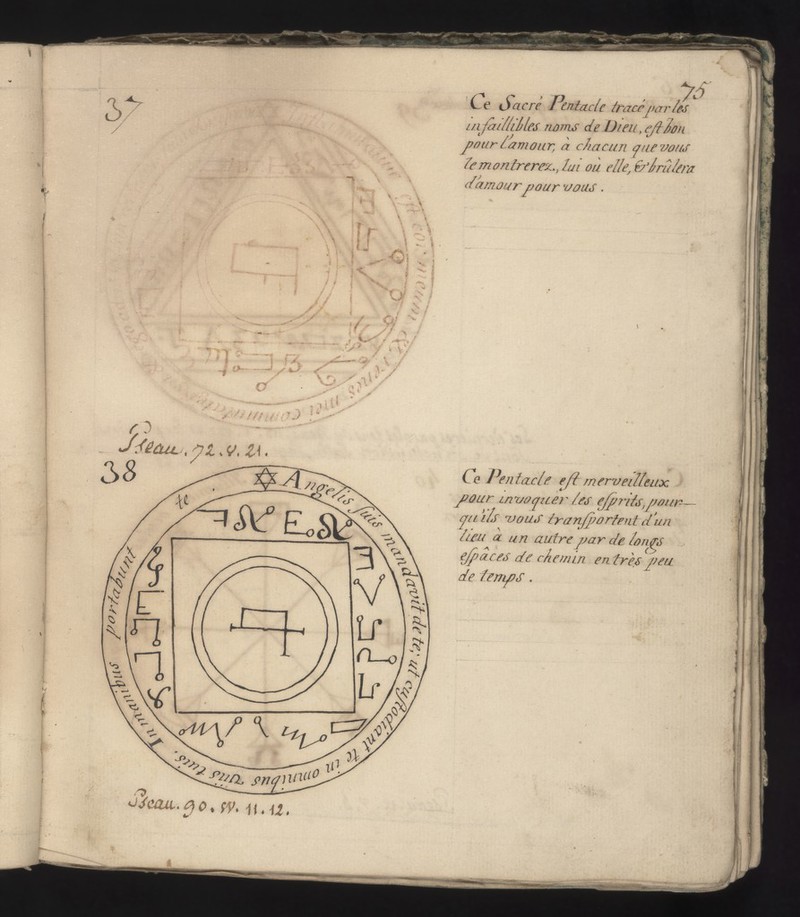 75
37
Ce Sacré Pentacle tracé par les
infaillibles noms de Dieu, eſt bon
pour l'amour, à chacun que vous
le montrerez, lui où elle, & brûlera
d'amour pour vous.
cor meum & renes mei commutati
Pseau. 72. v. 21.
38
Ce Pentacle eſt merveilleux
pour invoquér les eſprits, pour
qu'ils vous tranſportent d'un
lieu à un autre par de longs
eſpâces de chemin en très peu
de temps.
✡ Angelis ſuis mandavit de te; ut cuſtodiant te in omnibus viis tuis. In manibus portabunt te.
Pseau. 90. v. 11. 12.